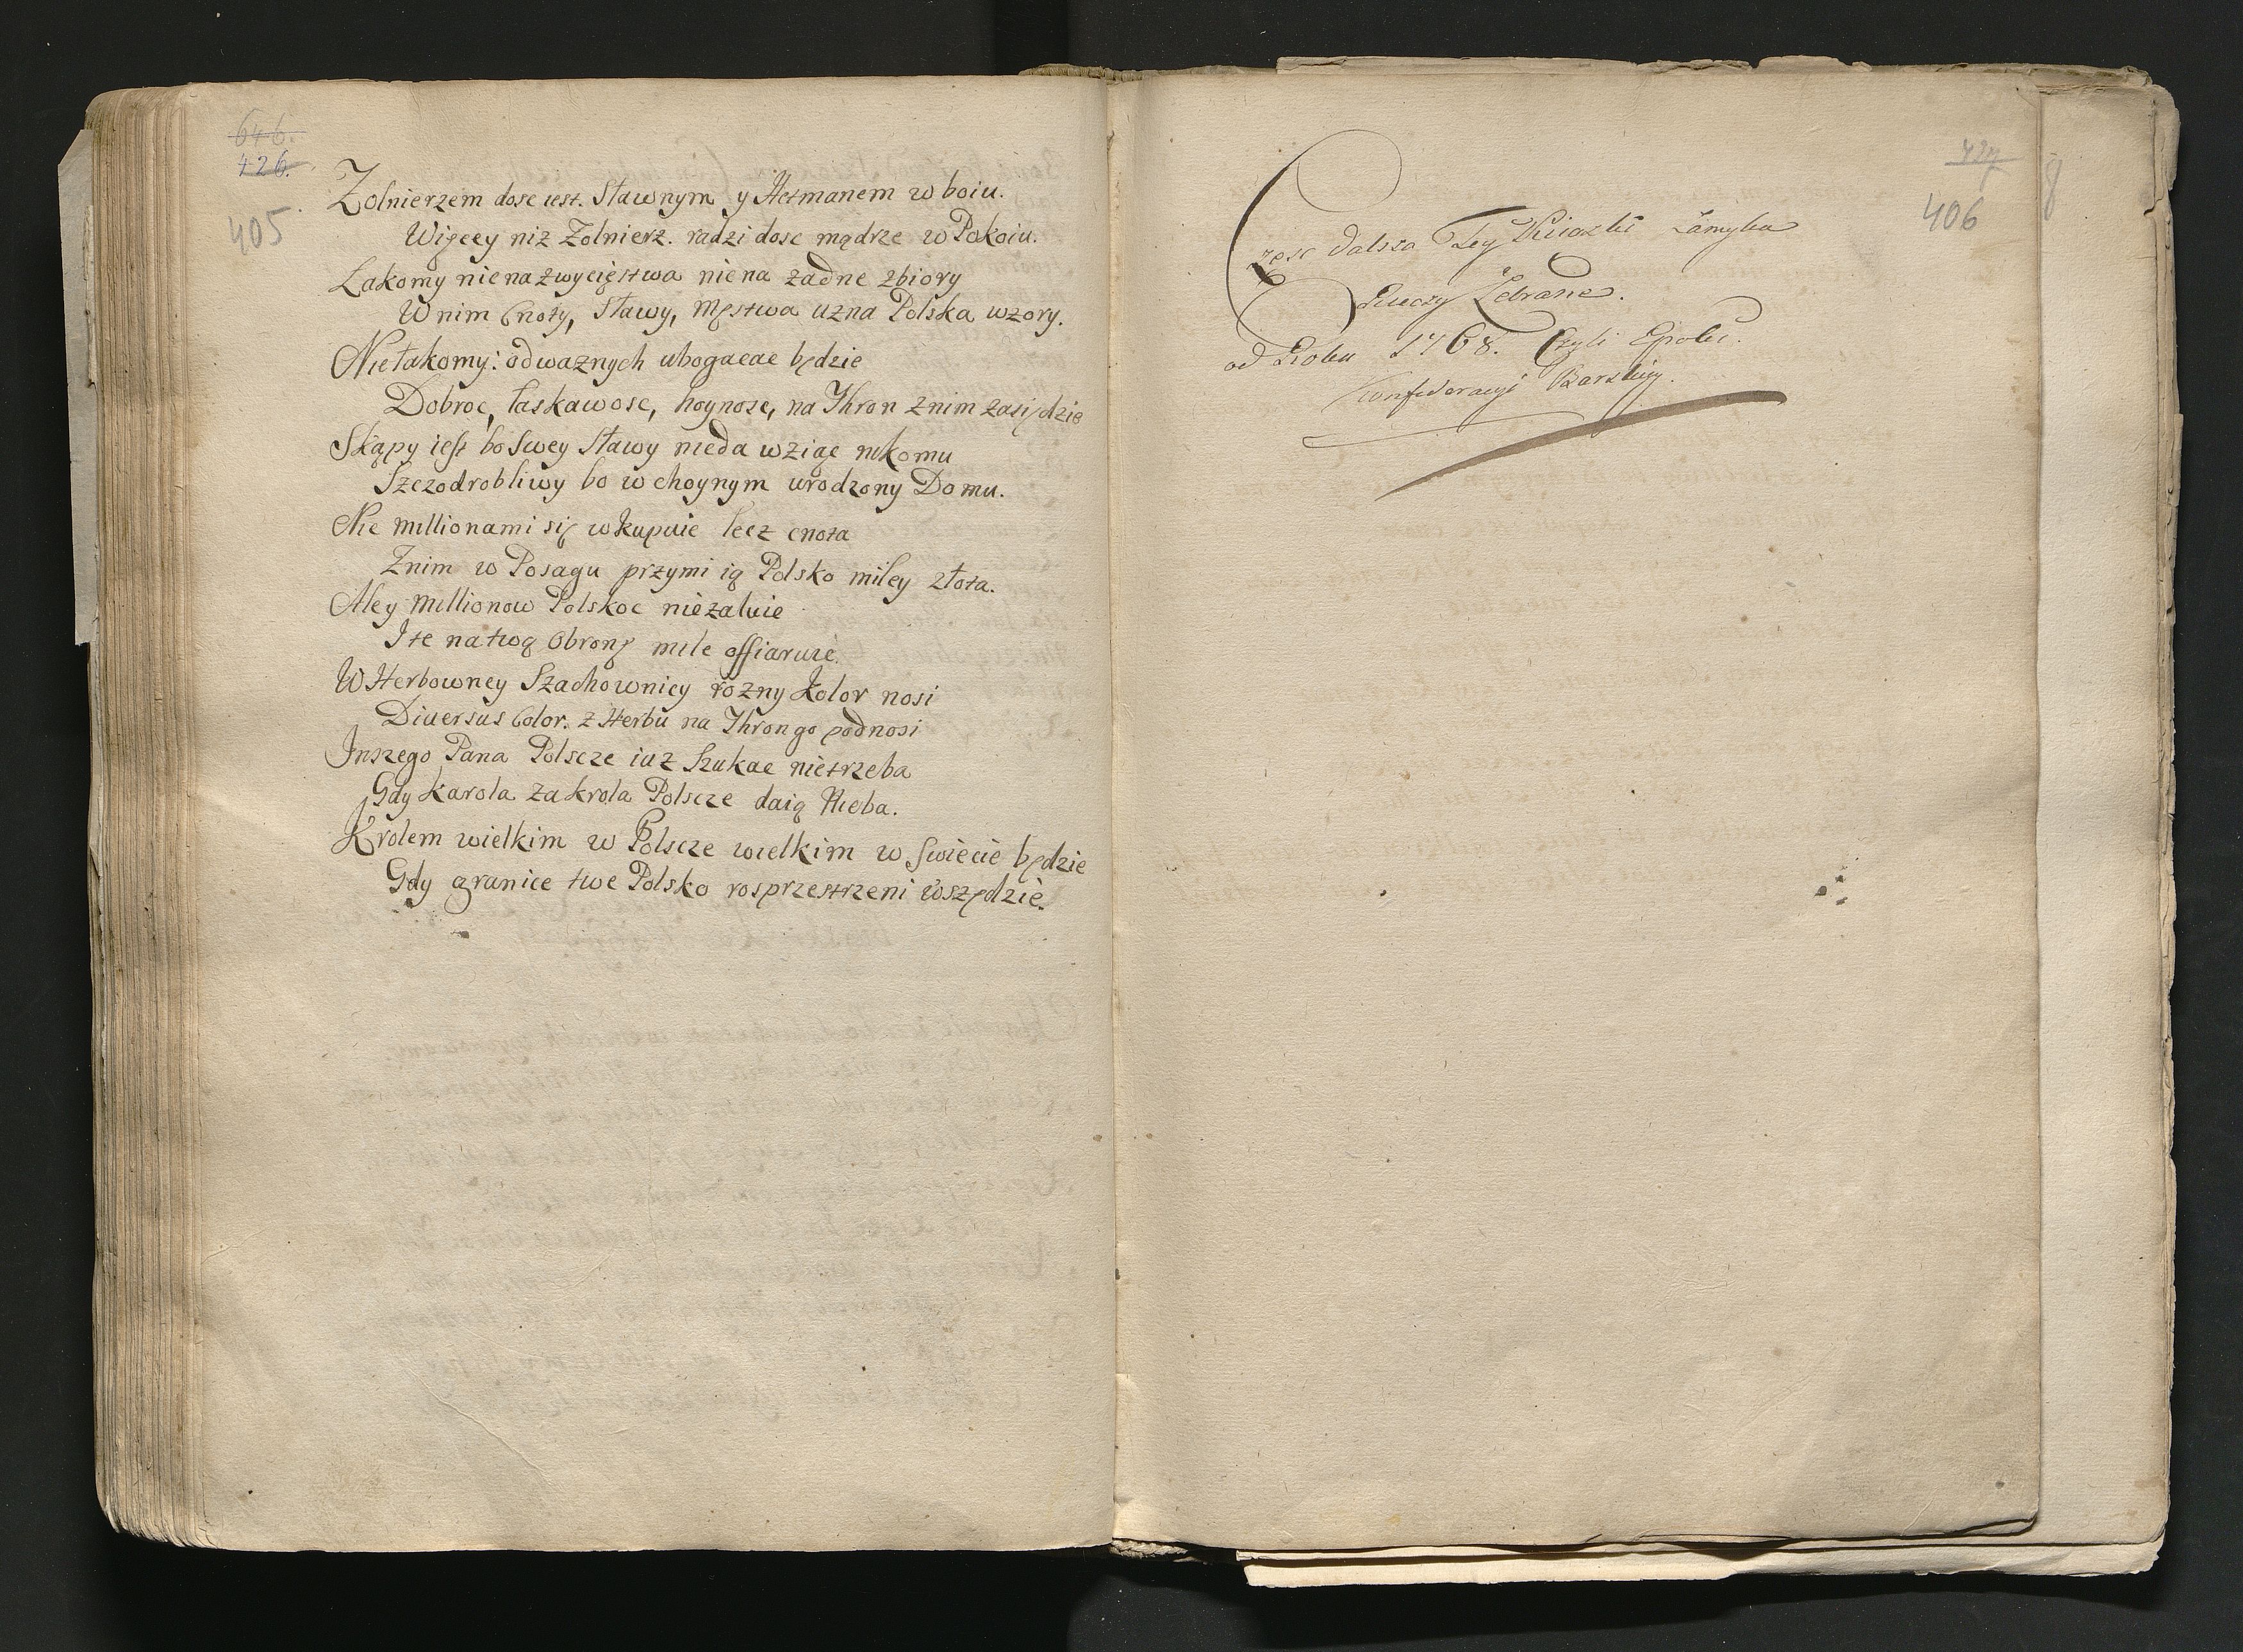 646.
426.
405
Zolnierzem dosc iest. Sławnym y Hetmanem w boiu.
Więcey niz Zolnierz. radzi dosc mądrze w Pokoiu.
Łakomy nie na zwycięstwa nie na zadne zbiory
W nim Cnoty, Sławy, Męstwa uzna Polska wzory.
Niełakomy: odwaznych ubogacac będzie
Dobroc, łaskawosc, hoynosc, na Thron z nim zasiędzie
Skąpy iest bo Swey Sławy nieda wziąc nikomu
Szczodrobliwy bo w choynym urodzony Domu.
Nie millionami się wkupuie lecz cnota
Znim w Posagu przymi ią Polsko miley złota.
Aley Millionow Polskoc niezaluie
I te na twą Obronę mile offiaruie.
W Herbowney Szachownicy rozny Kolor nosi
Diversus Color. z Herbu na Thron go podnosi
Inszego Pana Polscze iuz Szukac nietrzeba
Gdy Karola za krola Polscze daią Nieba.
Krolem wielkim w Polscze wielkim w Swiecie będzie
Gdy granice twe Polsko rosprzestrzeni wszędzie.
427
406
8
Częsc dalsza Tey Ksiazki Zamyka
Rzeczy Zebrane.
od Roku 1768. Czyli Epoki.
Konfederacyi Barskiey.